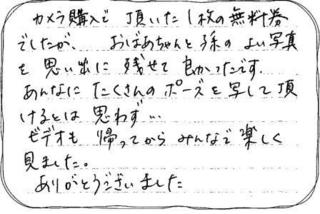 カメラ購入で 頂いた1枚の無料券
でしたが、 おばあちゃんと孫の よい写真
を 思い出に 残せて 良かったです.
あんなに たくさんの ポーズを 写して 頂
けるとは 思わず…
ビデオも 帰ってから みんなで 楽しく
見ました。
ありがとうございました